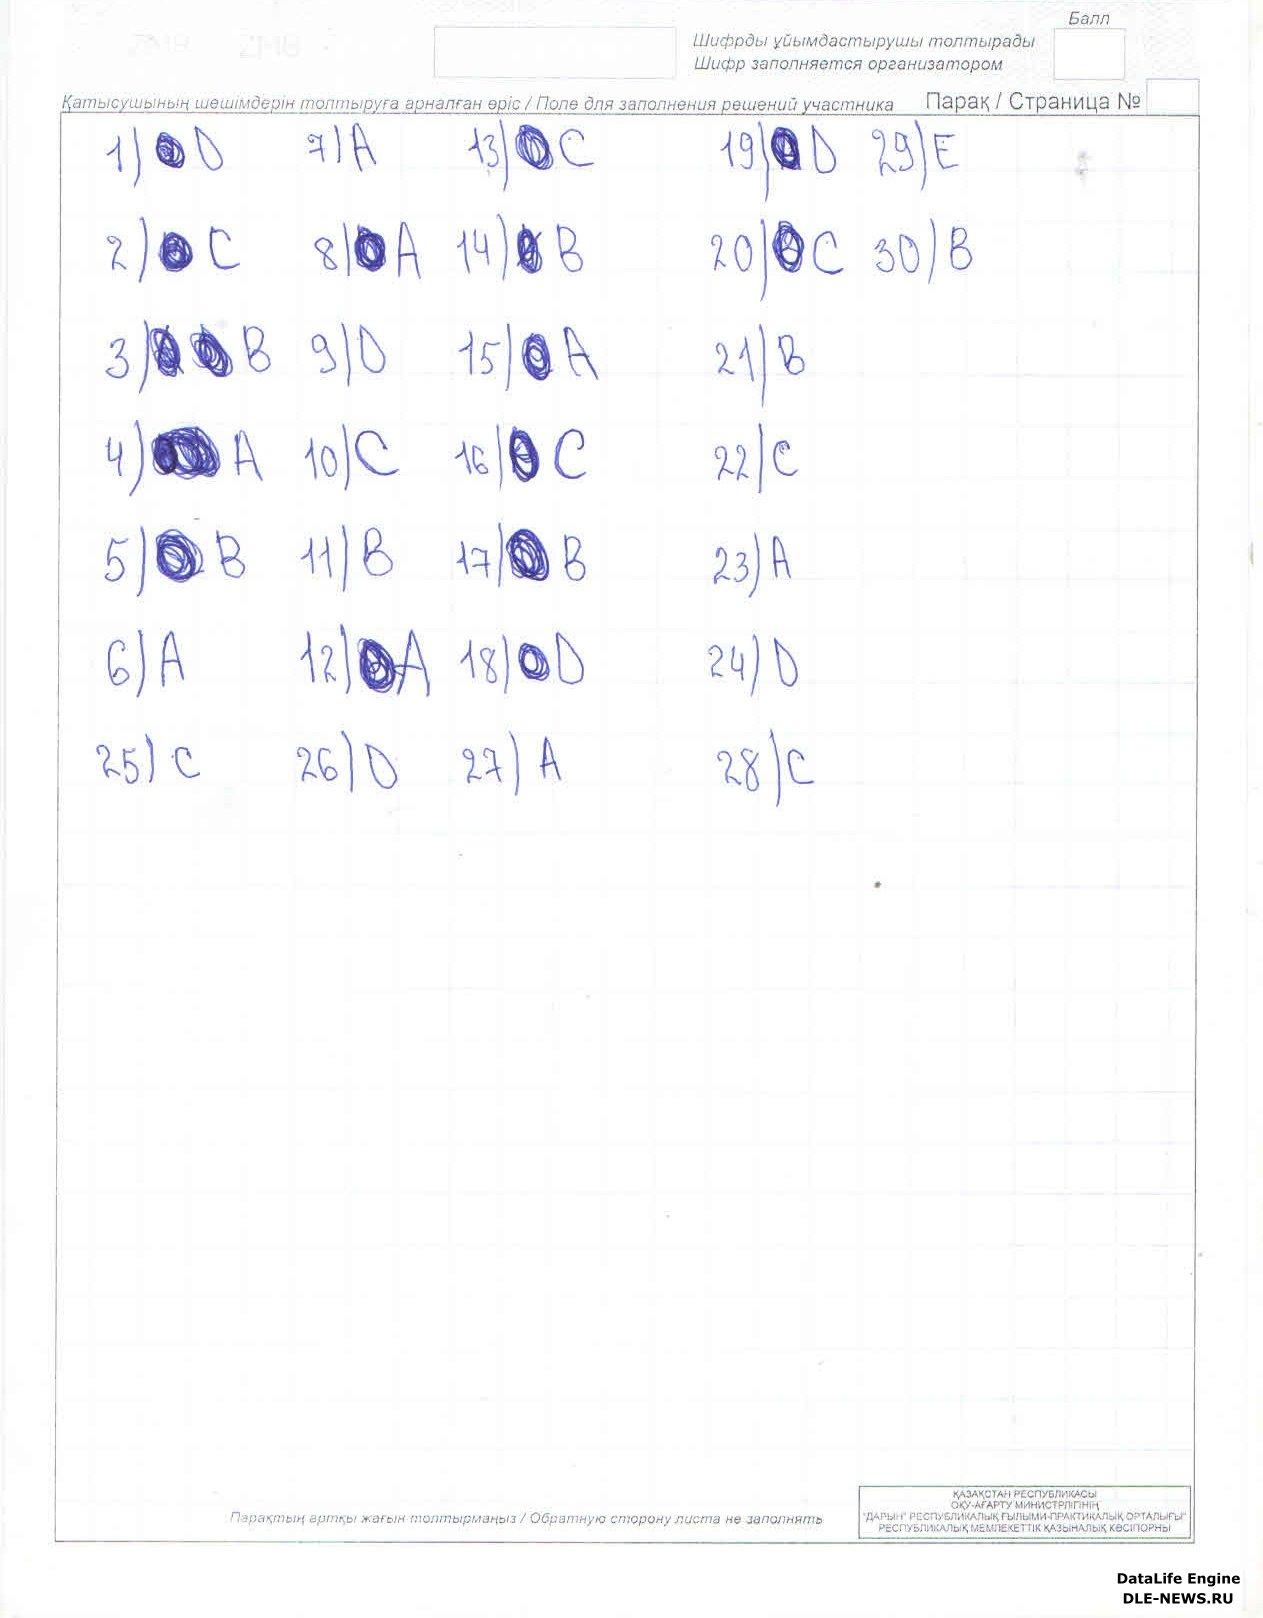 Балл
Шифрды ұйымдастырушы толтырады
Шифр заполняется организатором
Қатысушының шешімдерін толтыруға арналған өріс / Поле для заполнения решений участника Парақ / Страница №
1) D 7) A 13) C 19) D 29) E
2) C 8) A 14) B 20) C 30) B
3) B 9) D 15) A 21) B
4) A 10) C 16) C 22) C
5) B 11) B 17) B 23) A
6) A 12) A 18) D 24) D
25) C 26) D 27) A 28) C
Парақтың артқы жағын толтырмаңыз / Обратную сторону листа не заполнять
ҚАЗАҚСТАН РЕСПУБЛИКАСЫ
ОҚУ-АҒАРТУ МИНИСТРЛІГІНІҢ
"ДАРЫН" РЕСПУБЛИКАЛЫҚ ҒЫЛЫМИ-ПРАКТИКАЛЫҚ ОРТАЛЫҒЫ"
РЕСПУБЛИКАЛЫҚ МЕМЛЕКЕТТІК ҚАЗЫНАЛЫҚ КӘСІПОРНЫ
DataLife Engine
DLE-NEWS.RU